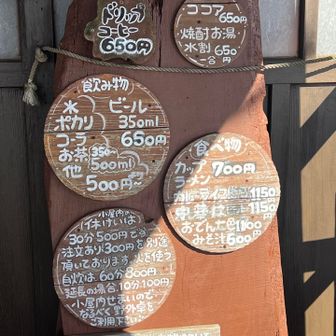 ドリップ
コーヒー
650円
ココア
650円
焼酎お湯
水割 650
一合 円
飲み物
水 ビール
ポカリ 350ml
コーラ 650円
お茶 350~
他 500ml
500円~
食べ物
カップ 700円
ラーメン
カレーライス 1150
1150
おでん 1100
みそ汁 600円
小屋内
休けいは
30分500円で
注文より300円を別途
頂いております。火を使う
自炊は 60分 800円
延長の場合、10分100円
小屋内せまいので
なるべく野外卓を
ご利用下さい